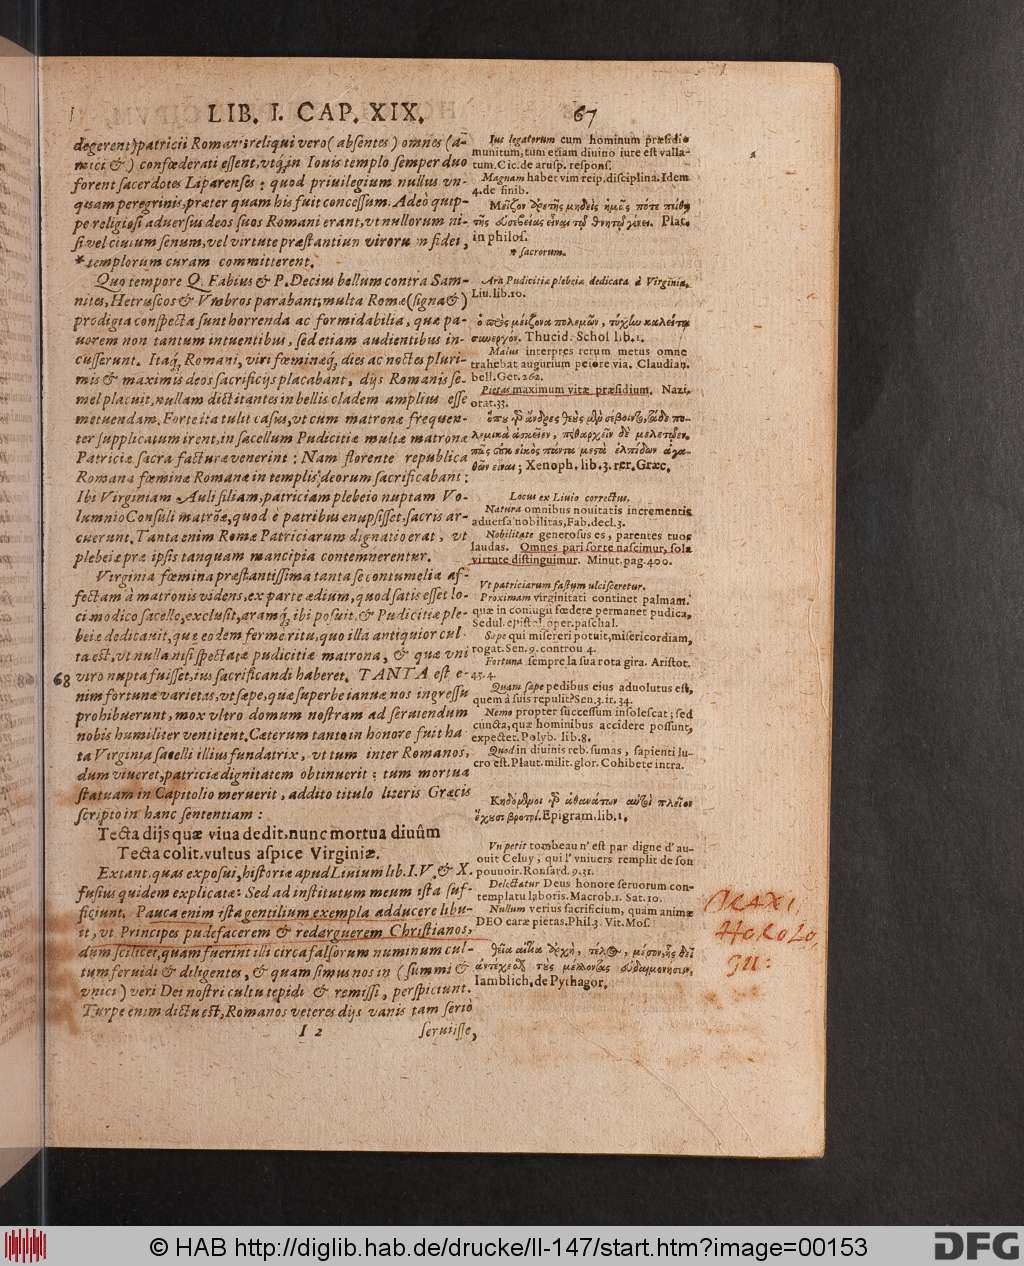 LIB. I. CAP. XIX. 67
degerent) patricii Romani: reliqui vero (absentes) omnes (a-
mici &) confœderati essent, vtq́; in Iouis templo semper duo
forent sacerdotes Liparenses: quod priuilegium nullus vn-
quam peregrinis, præter quam his fuit concessum. Adeò quip-
pe religiosi aduersus deos suos Romani erant, vt nullorum ni-
si vel ciuium senum, vel virtute præstantium virorum fidei,
*templorum curam committerent.
Quo tempore Q. Fabius & P. Decius bellum contra Sam-
nites, Hetruscos & Vmbros parabant; multa Romæ (signa &)
prodigia conspecta sunt horrenda ac formidabilia, quæ pa-
uorem non tantum intuentibus, sed etiam audientibus in-
cusserunt. Itaq́; Romani, viri fœminæq́;, dies ac noctes pluri-
mis & maximis deos sacrificijs placabant, dijs Romanis se-
mel placuit, nullam dictitantes in bellis cladem amplius esse
metuendam. Forte ita tulit casus, vt cum matronæ frequen-
ter supplicatum irent, in sacellum Pudicitiæ multæ matronæ
Patriciæ sacra facturæ venerint: Nam florente republica
Romana fœminæ Romanæ in templis deorum sacrificabant:
Ibi Virginiam Auli filiam, patriciam plebeio nuptam Vo-
lumnio Consuli matrõæ, quod è patribus enupsisset, sacris ar-
cuerunt. Tanta enim Romæ Patriciarum dignatio erat, vt
plebeiæ præ ipsis tanquam mancipia contemnerentur.
Virginia fœmina præstantissima tanta se contumelia af-
fectam à matronis videns, ex parte ædium, quod satis esset lo-
ci modico sacello, exclusit, aramq́; ibi posuit, & Pudicitiæ ple-
beiæ dedicauit, quæ eodem ferme ritu, quo illa antiquior cul-
ta est, vt nulla nisi spectatæ pudicitiæ matrona, & quæ vni
68 viro nupta fuisset, ius sacrificandi haberet. TANTA est e-
nim fortunæ varietas, vt sæpe, quæ superbe ianuæ nos ingressu
prohibuerunt, mox vltro domum nostram ad seruiendum
nobis humiliter ventitent. Cæterum tanto in honore fuit ha
ta Virginia sacelli illius fundatrix, vt tum inter Romanos,
dum viueret, patriciæ dignitatem obtinuerit: tum mortua
statuam in Capitolio meruerit, addito titulo literis Græcis
scripto in hanc sententiam:
Tecta dijs quæ viua dedit, nunc mortua diuûm
Tecta colit, vultus aspice Virginiæ.
Extant, quas exposui, historiæ apud Liuium lib. I. V. & X.
fusius quidem explicatæ: Sed ad institutum meum ista suf-
ficiunt. Pauca enim ista gentilium exempla adducere libu-
it, vt Principes pudefacerem & redarguerem Christianos,
dum scilicet, quam fuerint illi circa falsorum numinum cul-
tum feruidi & diligentes, & quam simus nos in (summi &
vnici) veri Dei nostri cultu tepidi & remissi, perspiciunt.
Turpe enim dictu est, Romanos veteres dijs vanis tam seriò
I 2 seruiisse,
Ius legatorum cum hominum præsidio
munitum, tum etiam diuino iure est valla-
tum. Cic. de arusp. respons.
Magnam habet vim reip. disciplina. Idem
4. de finib.
Μεῖζον ἀρετῆς μηδεὶς ἡμᾶς πότε πείθῃ
τῆς εὐσεβείας εἶναι τῷ θνητῷ γένει. Plat.
in philos.
* sacrorum.
Ara Pudicitiæ plebeiæ dedicata à Virginia.
Liu. lib. 10.
μείζονα πολεμῶν, τύχίω καλείτω
συνεργόν. Thucid. Schol lib. 1.
Maius interpres rerum metus omne
trahebat augurium peiore via. Claudian.
bell. Get. 262.
Pietas maximum vitæ præsidium. Nazi.
orat. 33.
ὅπου ἄνδρες θεοὺς
λεμικὰ ἀσκοῖεν, πειθαρχεῖν δὲ μελετῷεν,
πῶς οὐκ εἰκὸς πάντα μεστὰ ἐλπίδων ἀγα-
θῶν εἶναι; Xenoph. lib. 3. rer. Græc.
Locus ex Liuio correctus.
Natura omnibus nouitatis incrementis
aduersa nobilitas, Fab. decl. 3.
Nobilitate generosus es, parentes tuos
laudas. Omnes pari sorte nascimur, sola
virtute distinguimur. Minut. pag. 400.
Vt patriciarum fastum vlcisceretur.
Proximam virginitati continet palmam,
quæ in coniugii fœdere permanet pudica,
Sedul. epistol. oper. paschal.
Sæpe qui misereri potuit, misericordiam,
rogat. Sen. 9. controu 4.
Fortuna sempre la sua rota gira. Ariost.
45. 4.
Quam sæpe pedibus eius aduolutus est,
quem à suis repulit? Sen. 3. ir. 34.
Nemo propter successum insolescat; sed
cuncta, quæ hominibus accidere possunt,
expectet. Polyb. lib. 8.
Quod in diuinis reb. sumas, sapienti lu-
cro est. Plaut. milit. glor. Cohibete intra.
ἀθανάτων πλεῖον
ἔχουσι βροτοί. Epigram. lib. 1.
Vn petit tombeau n' est par digne d' au-
ouit Celuy, qui l' vniuers remplit de son
pouuoir. Ronsard. 9. 31.
Delectatur Deus honore seruorum con-
templatu laboris. Macrob. 1. Sat. 10.
Nullum verius sacrificium, quàm animæ
DEO caræ pietas. Phil. 3. Vit. Mos.
Iamblich. de Pythagor.
HOROLO
GII:
© HAB http://diglib.hab.de/drucke/ll-147/start.htm?image=00153
DFG